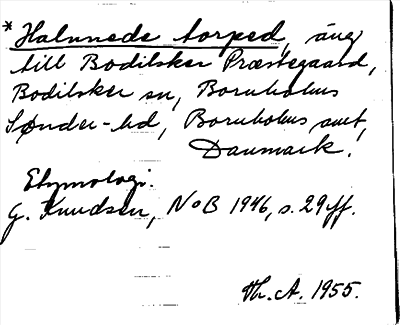 * Halnnede torped, äng
till Bodilsker Præstegaard,
Bodilsker sn, Bornholms
Sønder-hd, Bornholms amt,
Danmark.
Etymologi.
G. Knudsen, NoB 1946, s. 29ff.
Th. A. 1955.